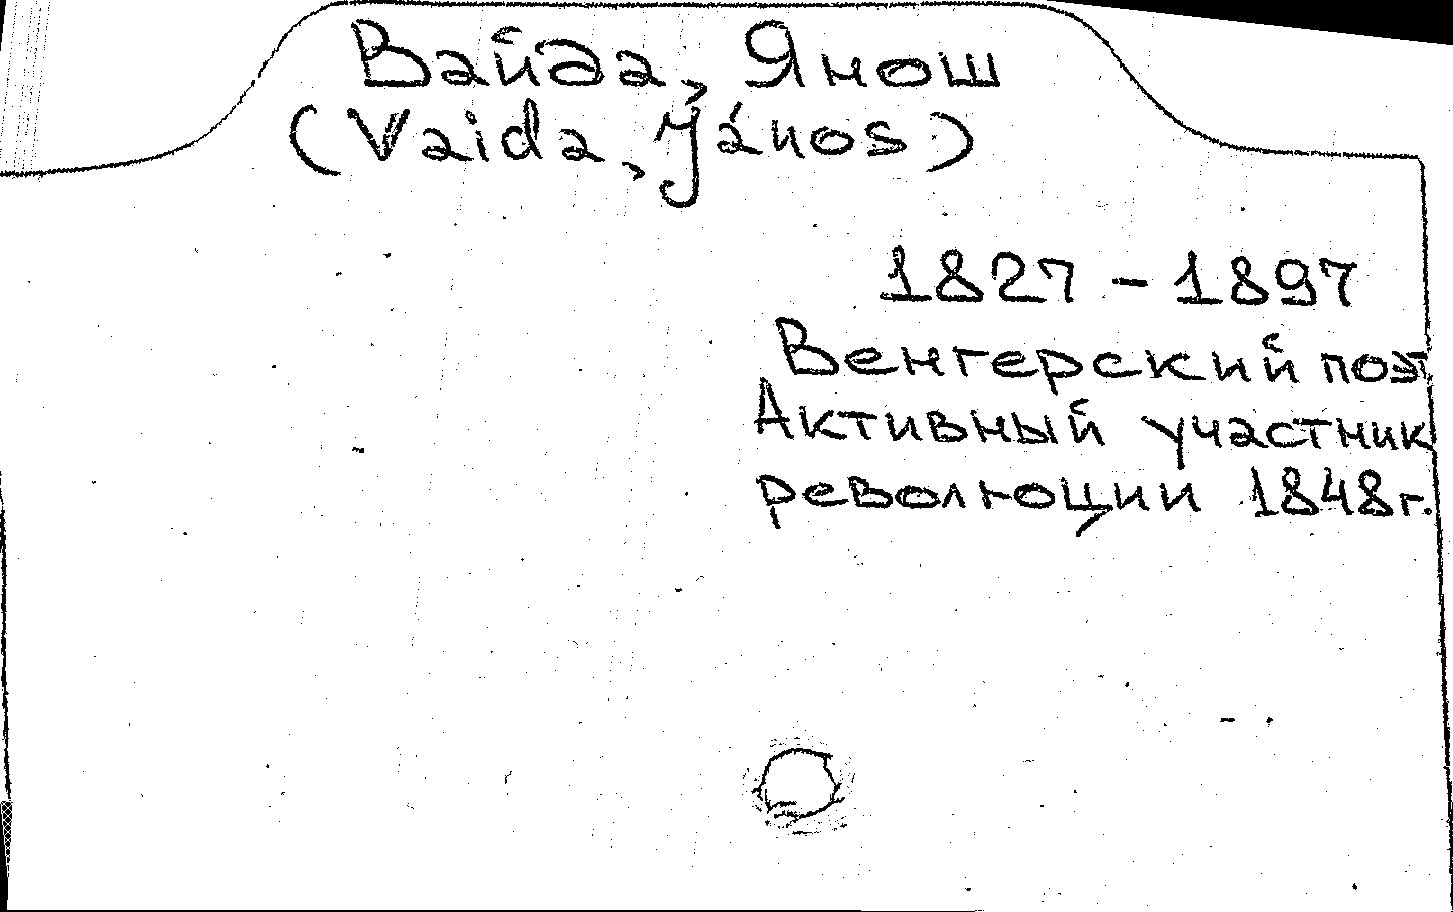 Вайда, Янош
(Vaida, János)
1827 - 1897
Венгерский поэт
Активный участник
революции 1848г.